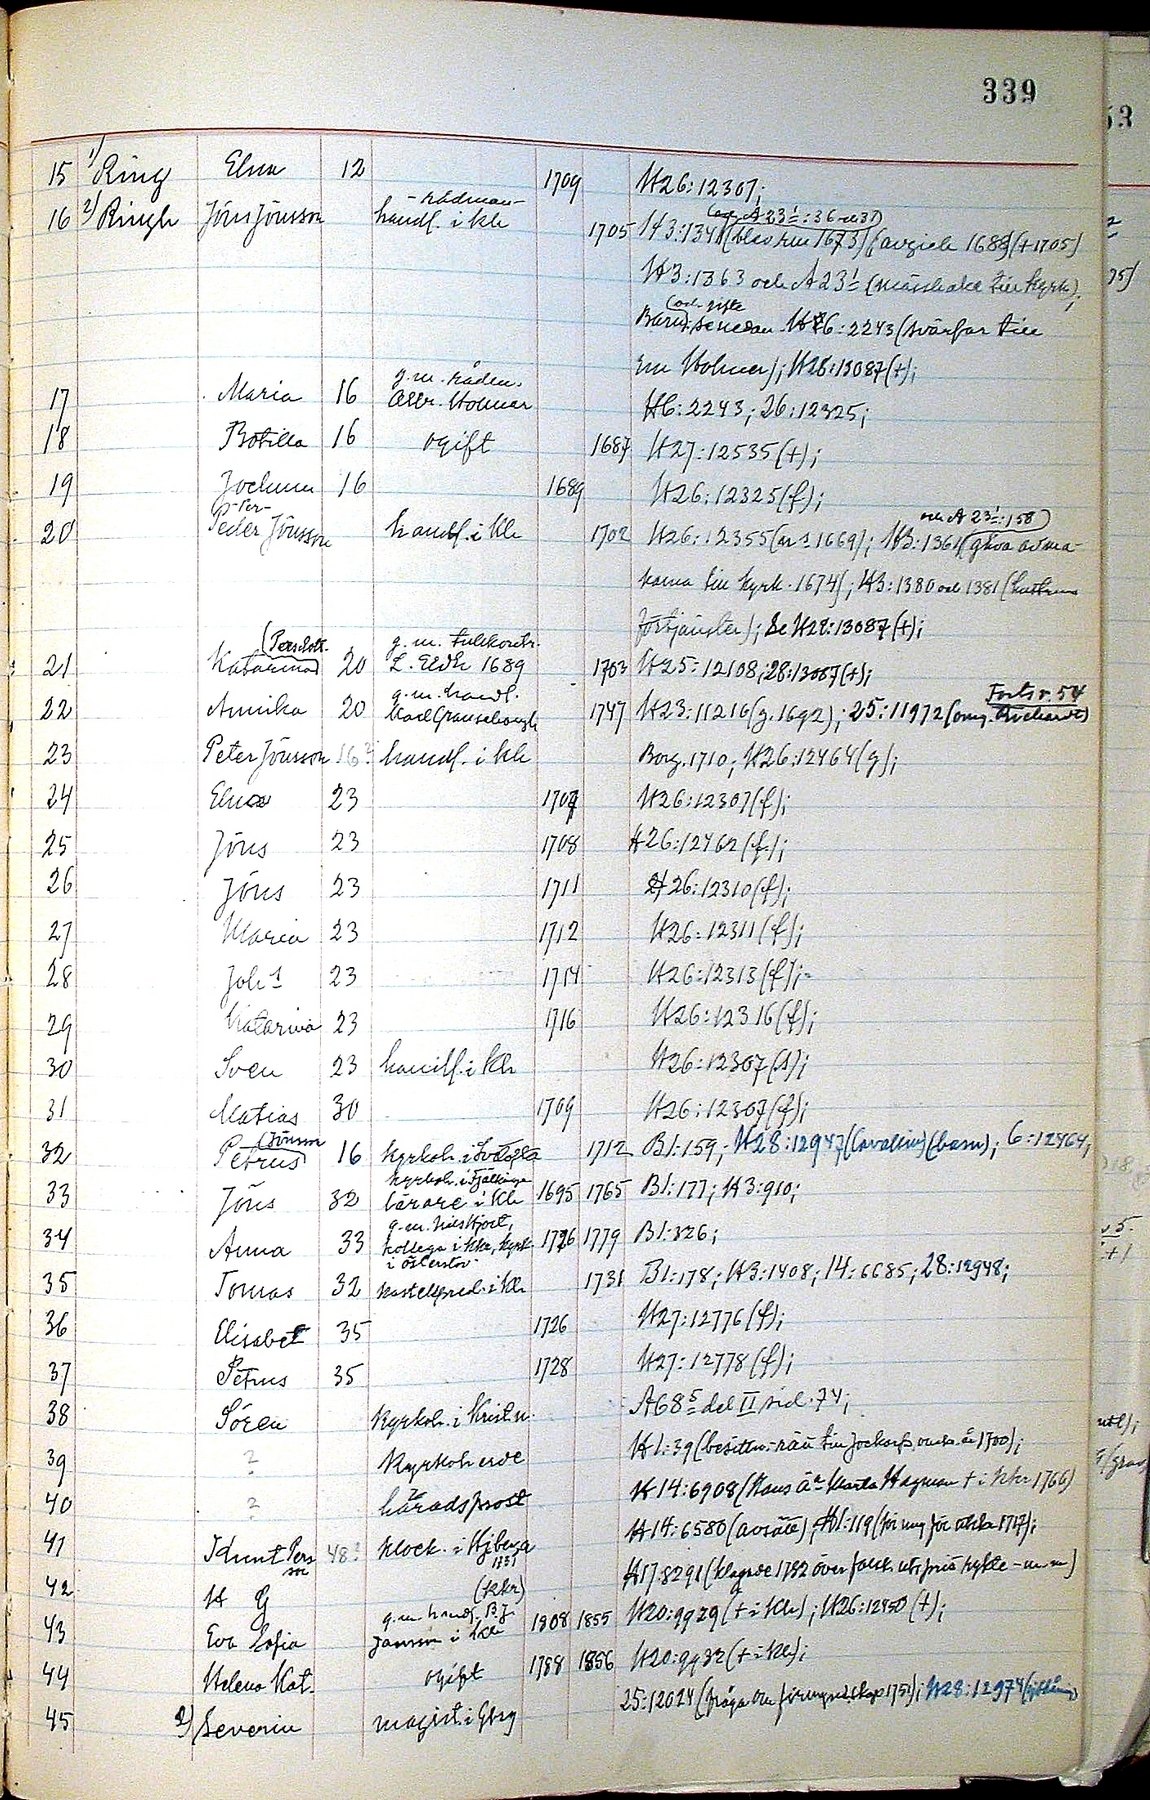 339
15 1) Ring Elna 12 1709 H26:12307;
16 2) Ringh Jöns Jönsson -rådman- handl. i Kh 1705 H3:1341 (blev rm 1673) (avgick 1683) (+1705)
(och A 23¹:36 o 37)
H3:1363 och A 23¹ (mässhake till kyrk);
Barn (och gifte) senedan H6:2243 (svärfar till
rm Holmer); H28:13087(+);
17 Maria 16 g.m. rådm. Holmer H6:2243; 26:12325;
18 Botilla 16 ogift 1687 H27:12535(+);
19 Jochum 16 1689 H26:12325(f);
20 Peder Jönsson -Per- handl. i Kh 1702 H26:12355 (ar 1669); H3:1361 (gåva av ma-
och A 23¹:158)
karna till kyrk. 1674); H3:1380 och 1381 (hustruns
förtjänster); Se H28:13087(+);
21 Katarina (Persdott. 20 g.m. tullkontr. L. Eldh 1689 1703 H25:12108; 28:13087(+);
22 Annika 20 g.m. handl. 1747 H23:11216 (g. 1692); 25:11972 (omg. Richardt)
Forts. s. 54
23 Peter Jönsson 16? handl. i Kh Borg. 1710; H26:12464(g);
24 Elna 23 1707 H26:12307(f);
25 Jöns 23 1708 H26:12462(f);
26 Jöns 23 1711 H26:12310(f);
27 Maria 23 1712 H26:12311(f);
28 Joh s 23 1714 H26:12313(f);
29 Katarina 23 1716 H26:12316(f);
30 Sven 23 handl. i Kh H26:12307(s);
31 Matias 30 1709 H26:12307(f);
32 Petrus (Jönsson 16 kyrkoh. i 1712 B1:159; H28:12947 (Cavallin) (barn); 6:12464;
33 Jöns 32 kyrkoh. i Fjälkinge lärare i Kh 1695 1765 B1:177; H3:910;
34 Anna 33 g.m. Nils Hjort, kollega i Khr, kyrk. i Österslöv 1726 1779 B1:326;
35 Tomas 32 kastellpred. i Kh 1731 B1:178; H3:1408; 14:6685; 28:12948;
36 Elisabet 35 1726 H27:12776(f);
37 Petrus 35 1728 H27:12778(f);
38 Sören kyrkoh. i Krist:n. A 68⁵ del II sid. 74;
39 ? kyrkoherde H1:39 (besittn.-rätt till år 1700);
40 ? häradsprost H14:6908 (Hans ä Marta Hagman + i Khr 1766)
41 Knut Persson 48? klock. i 1731 H14:6580 (avsatt); H1:119 (för 1717);
42 H G (Khr) H17:8291 (klagade 1782 över m.m)
43 Eva Sofia g.m. handl. B.J. Jansson i Kh 1808 1855 H20:9929 (+ i Kh); H26:12450 (+);
44 Helena Kat. ogift 1788 1856 H20:9932 (+ i Kh);
45 2) Severin magist. i Gbg 25:12024 (fråga om 1751); H28:12974